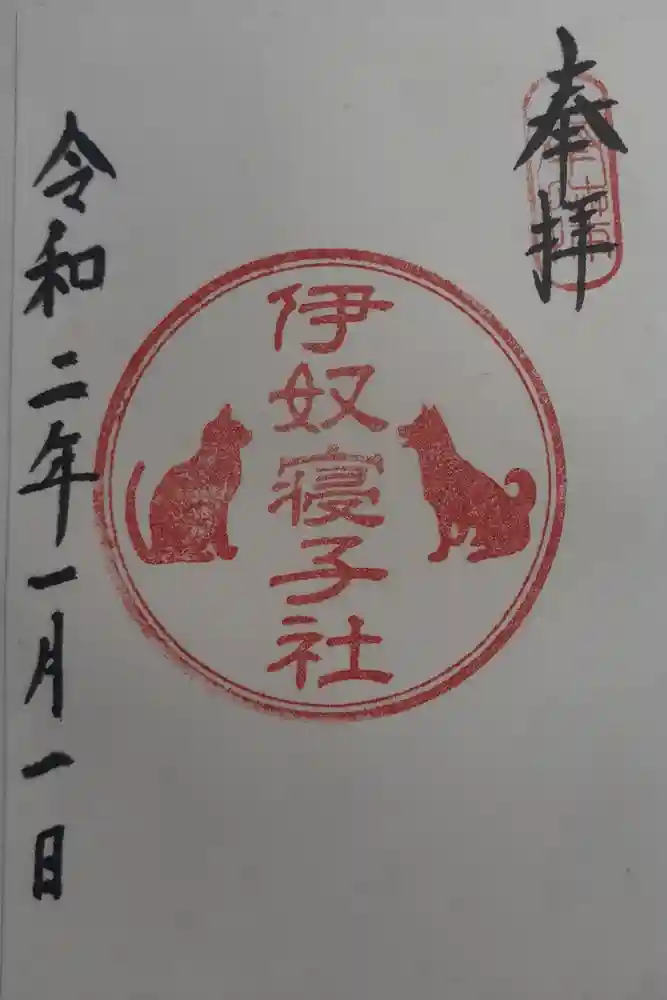 奉拝
伊奴寝子社
令和二年一月一日